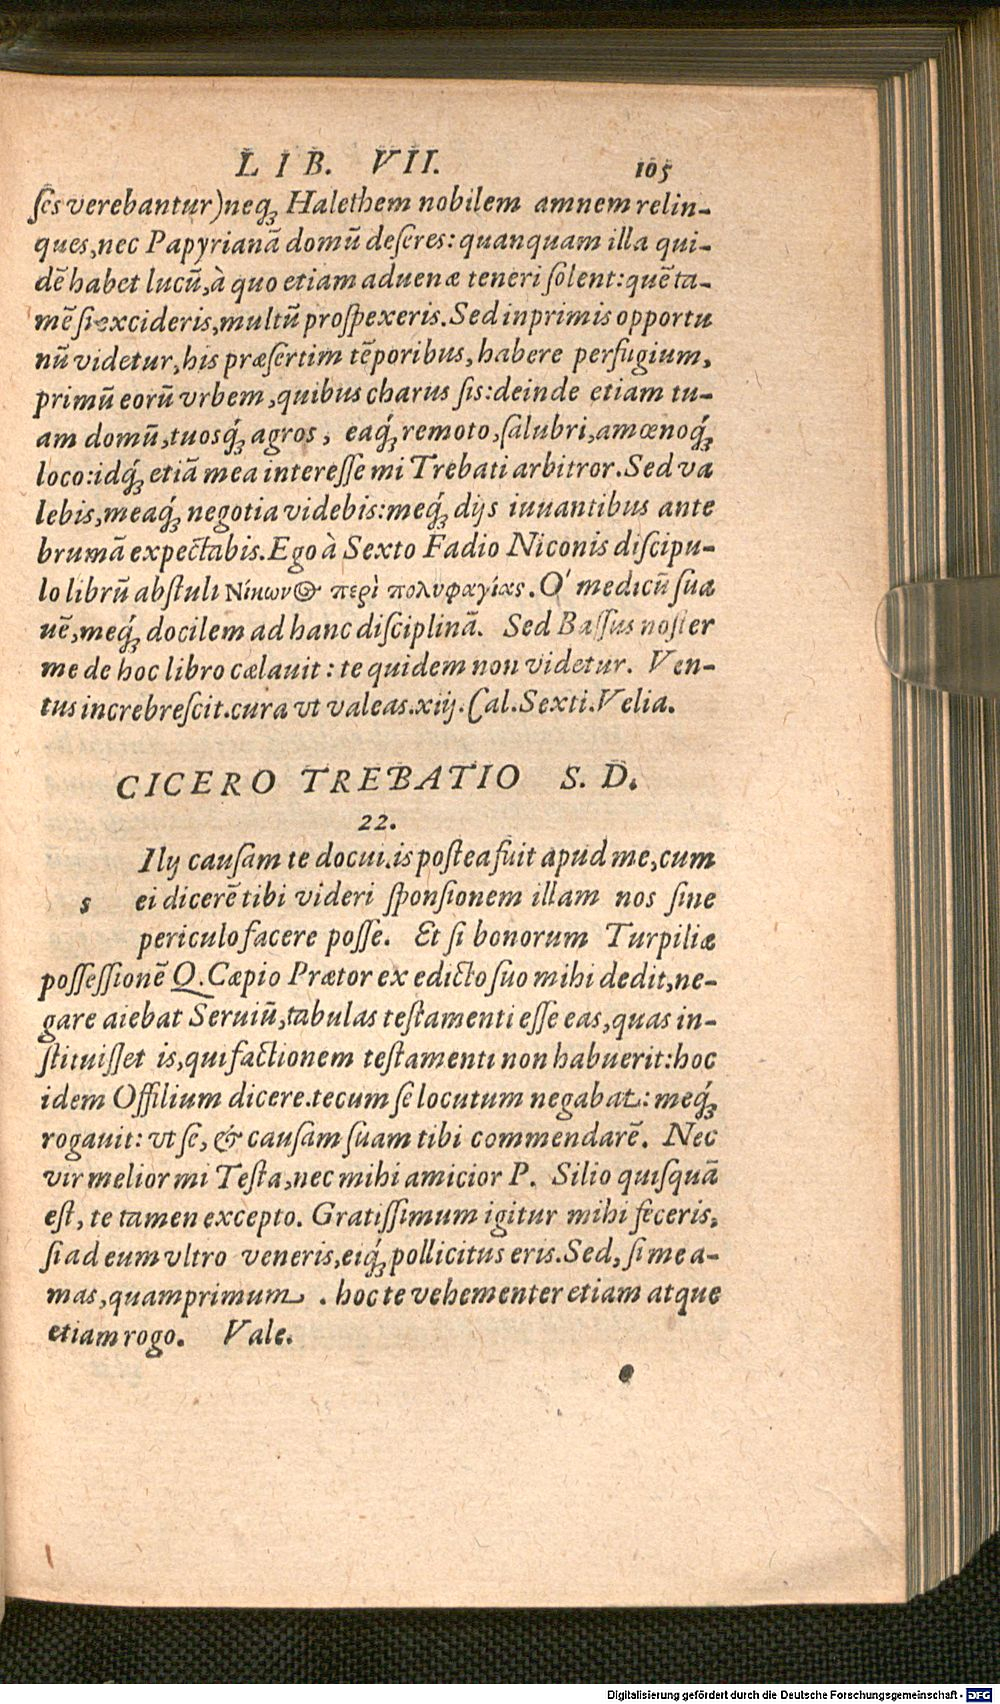 LIB. VII. 105
ſes verebantur)neq; Halethem nobilem amnem relin-
ques,nec Papyrianā domū deſeres: quanquam illa qui-
dē habet lucū,à quo etiam aduenæ teneri ſolent: quē ta-
mē ſi excideris,multū proſpexeris. Sed inprimis opportu
nū videtur,his præſertim tēporibus, habere perfugium,
primū eorū vrbem,quibus charus ſis: deinde etiam tu-
am domū,tuosq́; agros, eaq́; remoto,ſalubri,amœnoq́;
loco: idq́; etiā mea intereſſe mi Trebati arbitror. Sed va
lebis,meaq́; negotia videbis: meq́; dijs iuuantibus ante
brumā expectabis. Ego à Sexto Fadio Niconis diſcipu-
lo librū abſtuli Νίκωνος περὶ πολυφαγίας. O' medicū ſua
uē,meq́; docilem ad hanc diſciplinā. Sed Baſſus noſter
me de hoc libro cælauit: te quidem non videtur. Ven-
tus increbreſcit. cura vt valeas. xiij. Cal. Sexti. Velia.
CICERO TREBATIO S. D.
22.
Ilij cauſam te docui. is poſtea fuit apud me,cum
s ei dicerē tibi videri ſponſionem illam nos ſine
periculo facere poſſe. Et ſi bonorum Turpiliæ
poſſeſſionē Q. Cæpio Prætor ex edicto ſuo mihi dedit,ne-
gare aiebat Seruiū,tabulas teſtamenti eſſe eas,quas in-
ſtituiſſet is,qui factionem teſtamenti non habuerit: hoc
idem Offilium dicere. tecum ſe locutum negabat: meq́;
rogauit: vt ſe, & cauſam ſuam tibi commendarē. Nec
vir melior mi Teſta,nec mihi amicior P. Silio quiſquā
eſt, te tamen excepto. Gratiſſimum igitur mihi feceris,
ſi ad eum vltro veneris,eiq́; pollicitus eris. Sed, ſi me a-
mas,quamprimum . hoc te vehementer etiam atque
etiam rogo. Vale.
Digitalisierung gefördert durch die Deutsche Forschungsgemeinschaft - DFG